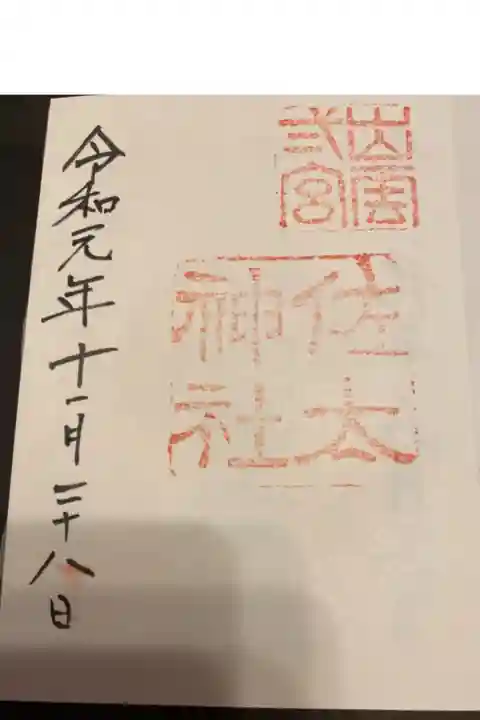 出雲
弍宮
佐太
神社
令和元年十一月二十八日